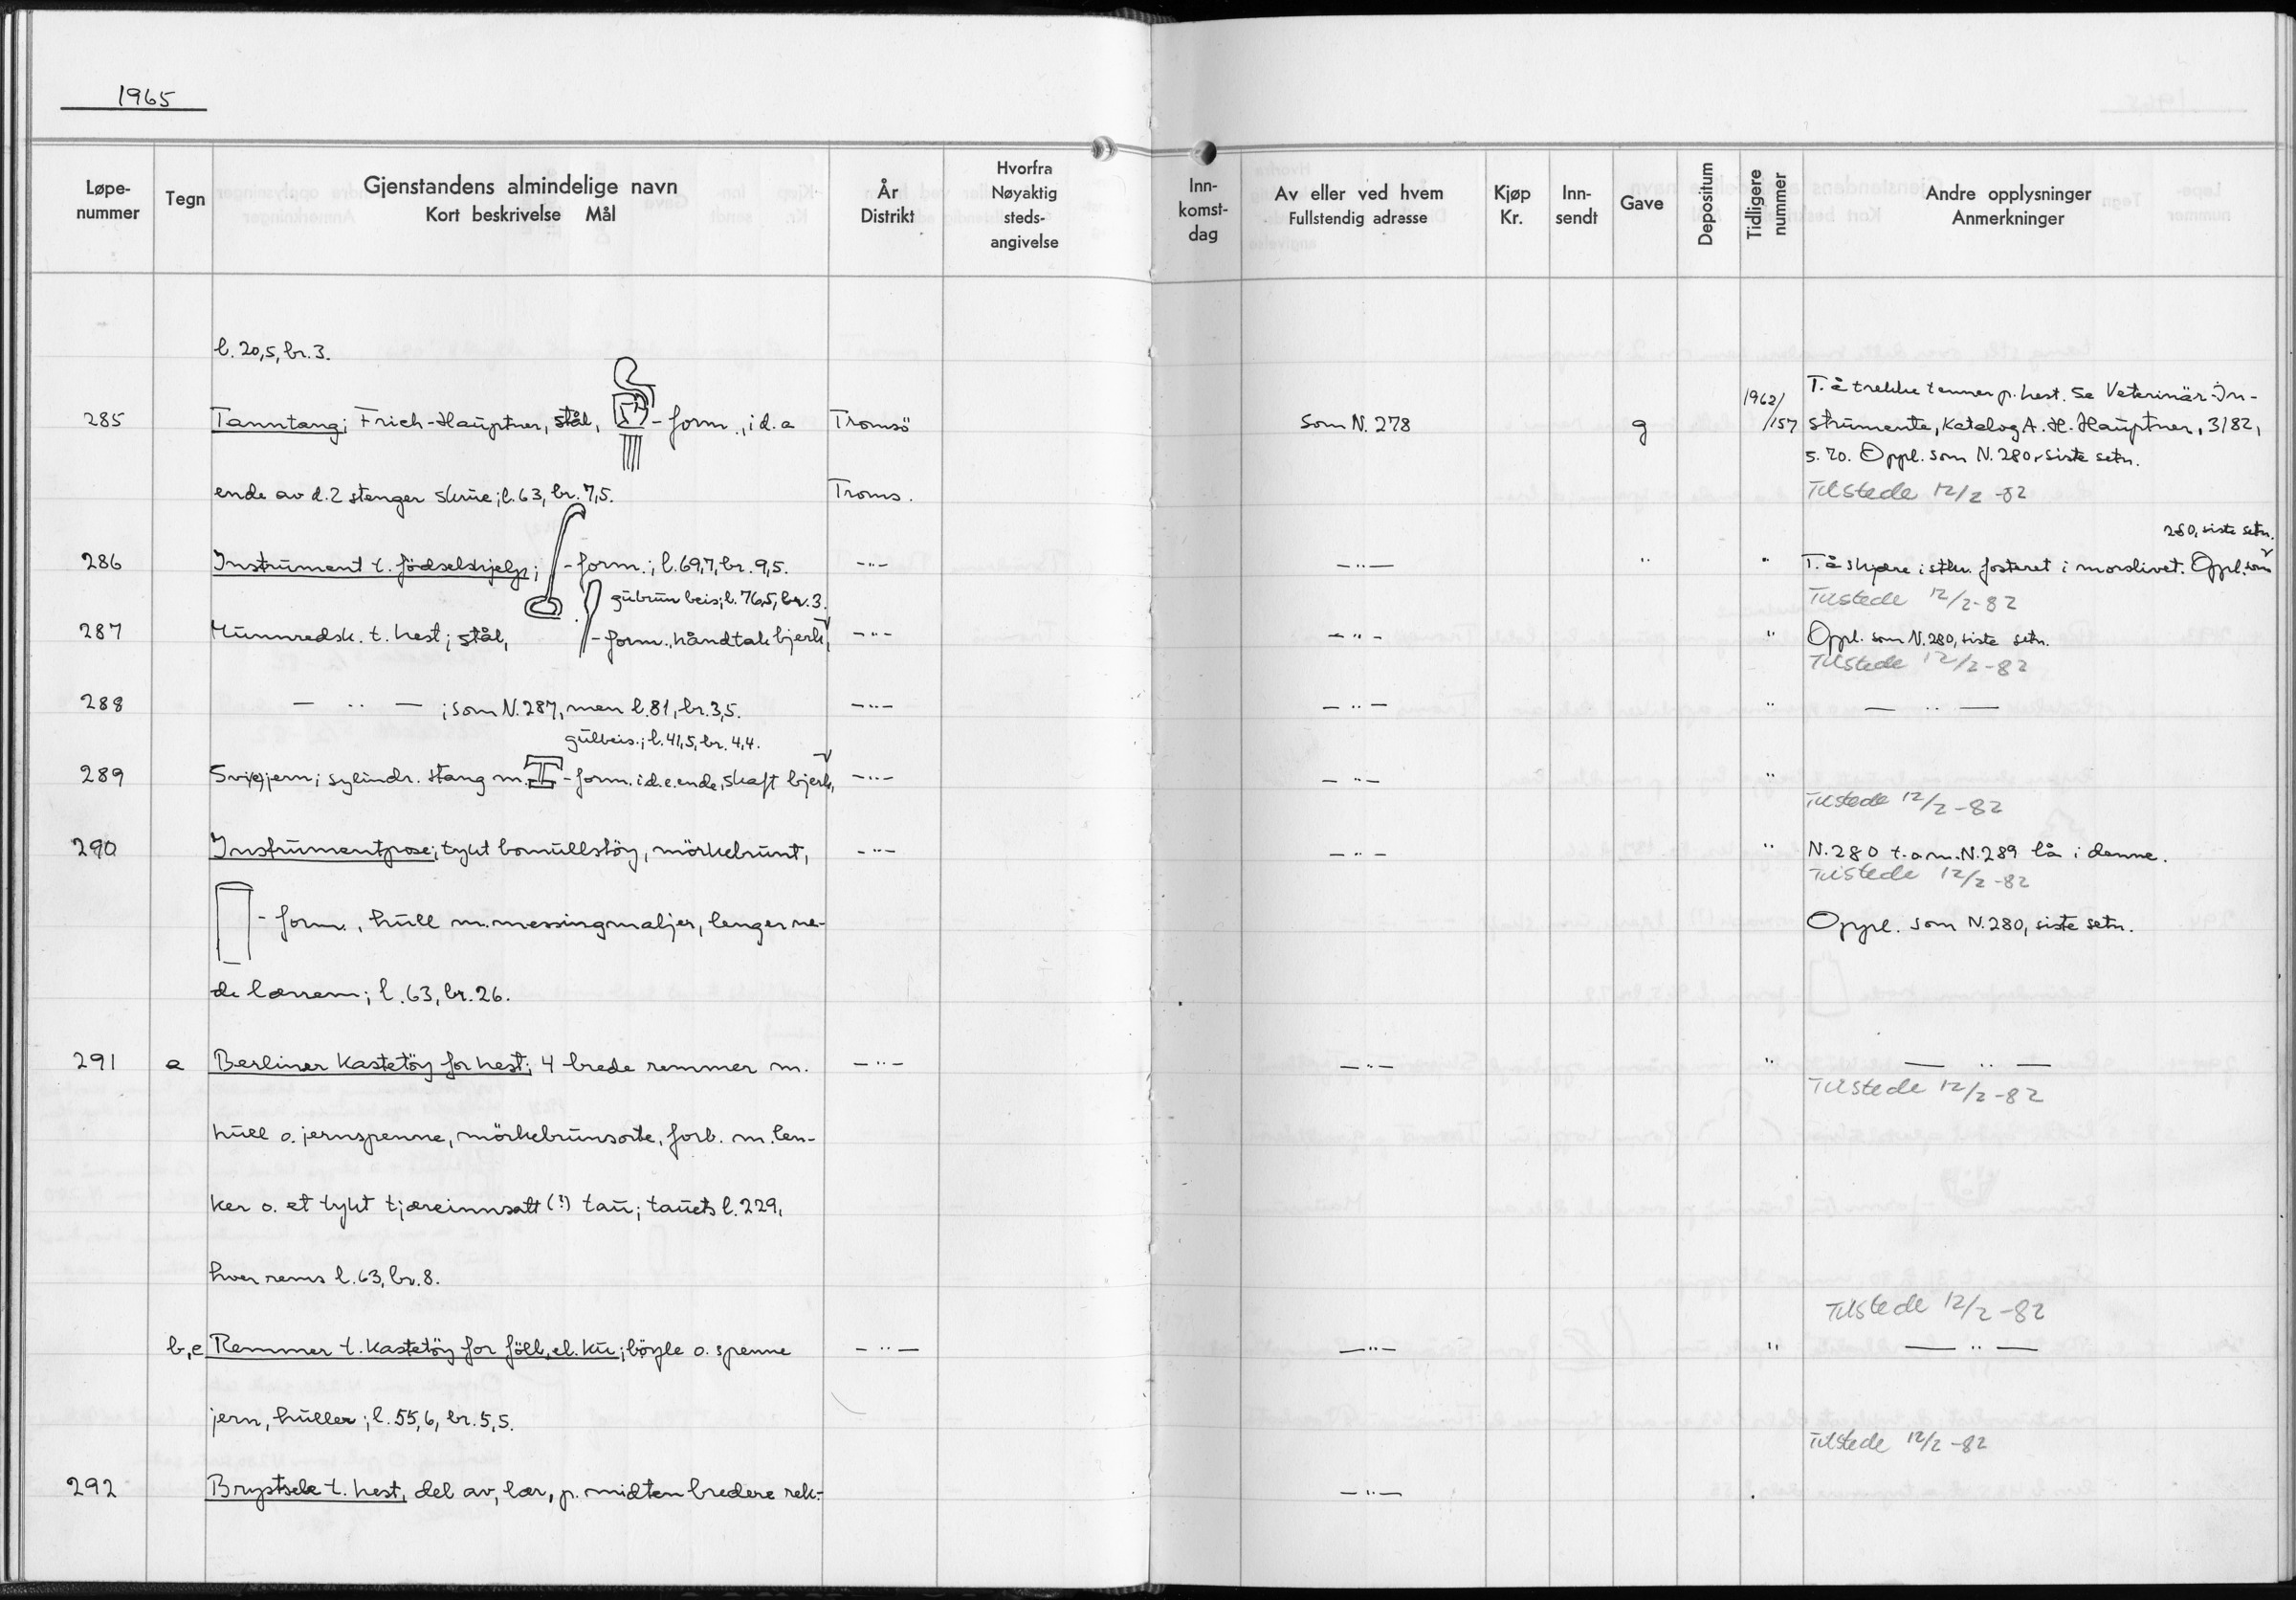 1965
Løpe-
nummer
Tegn
Gjenstandens almindelige navn
Kort beskrivelse Mål
År
Distrikt
Hvorfra
Nøyaktig
steds-
angivelse
Inn-
komst-
dag
Av eller ved hvem
Fullstendig adresse
Kjøp
Kr.
Inn-
sendt
Gave
Depositum
Tidligere
nummer
Andre opplysninger
Anmerkninger
l. 20,5, br. 3.
285 Tanntang; Frich-Hauptner, stål, - form., i d. a Tromsö Som N. 278 g 1962/157
T. å trekke tenner p. hest. Se Veterinär-In-
strumente, Katalog A. H. Hauptner, 3182,
s. 70. Oppl. som N. 280, siste setn.
ende av d. 2 stenger skrue; l. 63, br. 7,5. Troms. Tilstede 12/2 -82
280, siste setn.
286 Instrument t. födselshjelp; - form.; l. 69,7, br. 9,5. -"- -"- " " T. å skjære i stkr. fosteret i morslivet. Oppl. som
gulbrun beis; l. 76,5, br. 3. Tilstede 12/2-82
287 Munnredsk. t. hest; stål, - form., håndtak bjerk, -"- -"- " Oppl. som N. 280, siste setn.
Tilstede 12/2-82
288 - " - ; som N. 287, men l. 81, br. 3,5. -"- -"- " - " -
gulbeis.; l. 41,5, br. 4,4.
289 Svi(e)jern; sylindr. stang m. - form. i d. e. ende, skaft bjerk, -"- -"- "
Tilstede 12/2-82
290 Instrumentpose; tykt bomullstöy, mörkebrunt, -"- -"- " N. 280 t. o m. N. 289 lå i denne.
Tilstede 12/2-82
- form., hull m. messingmaljer, lenger ne- Oppl. som N. 280, siste setn.
de lærrem; l. 63, br. 26.
291 a Berliner kastetöy for hest; 4 brede remmer m. -"- -"- " - " -
Tilstede 12/2-82
hull o. jernspenne, mörkebrunsorte, forb. m. len-
ker o. et tykt tjæreinnsatt (?) tau; tauets l. 229,
hver rems l. 63, br. 8.
Tilstede 12/2-82
b,c Remmer t. kastetöy for föll, el. ku; böyle o. spenne -"- -"- " - " -
jern, huller; l. 55,6, br. 5,5.
Tilstede 12/2-82
292 Brystsele t. hest, del av, lær, p. midten bredere rek- -"-